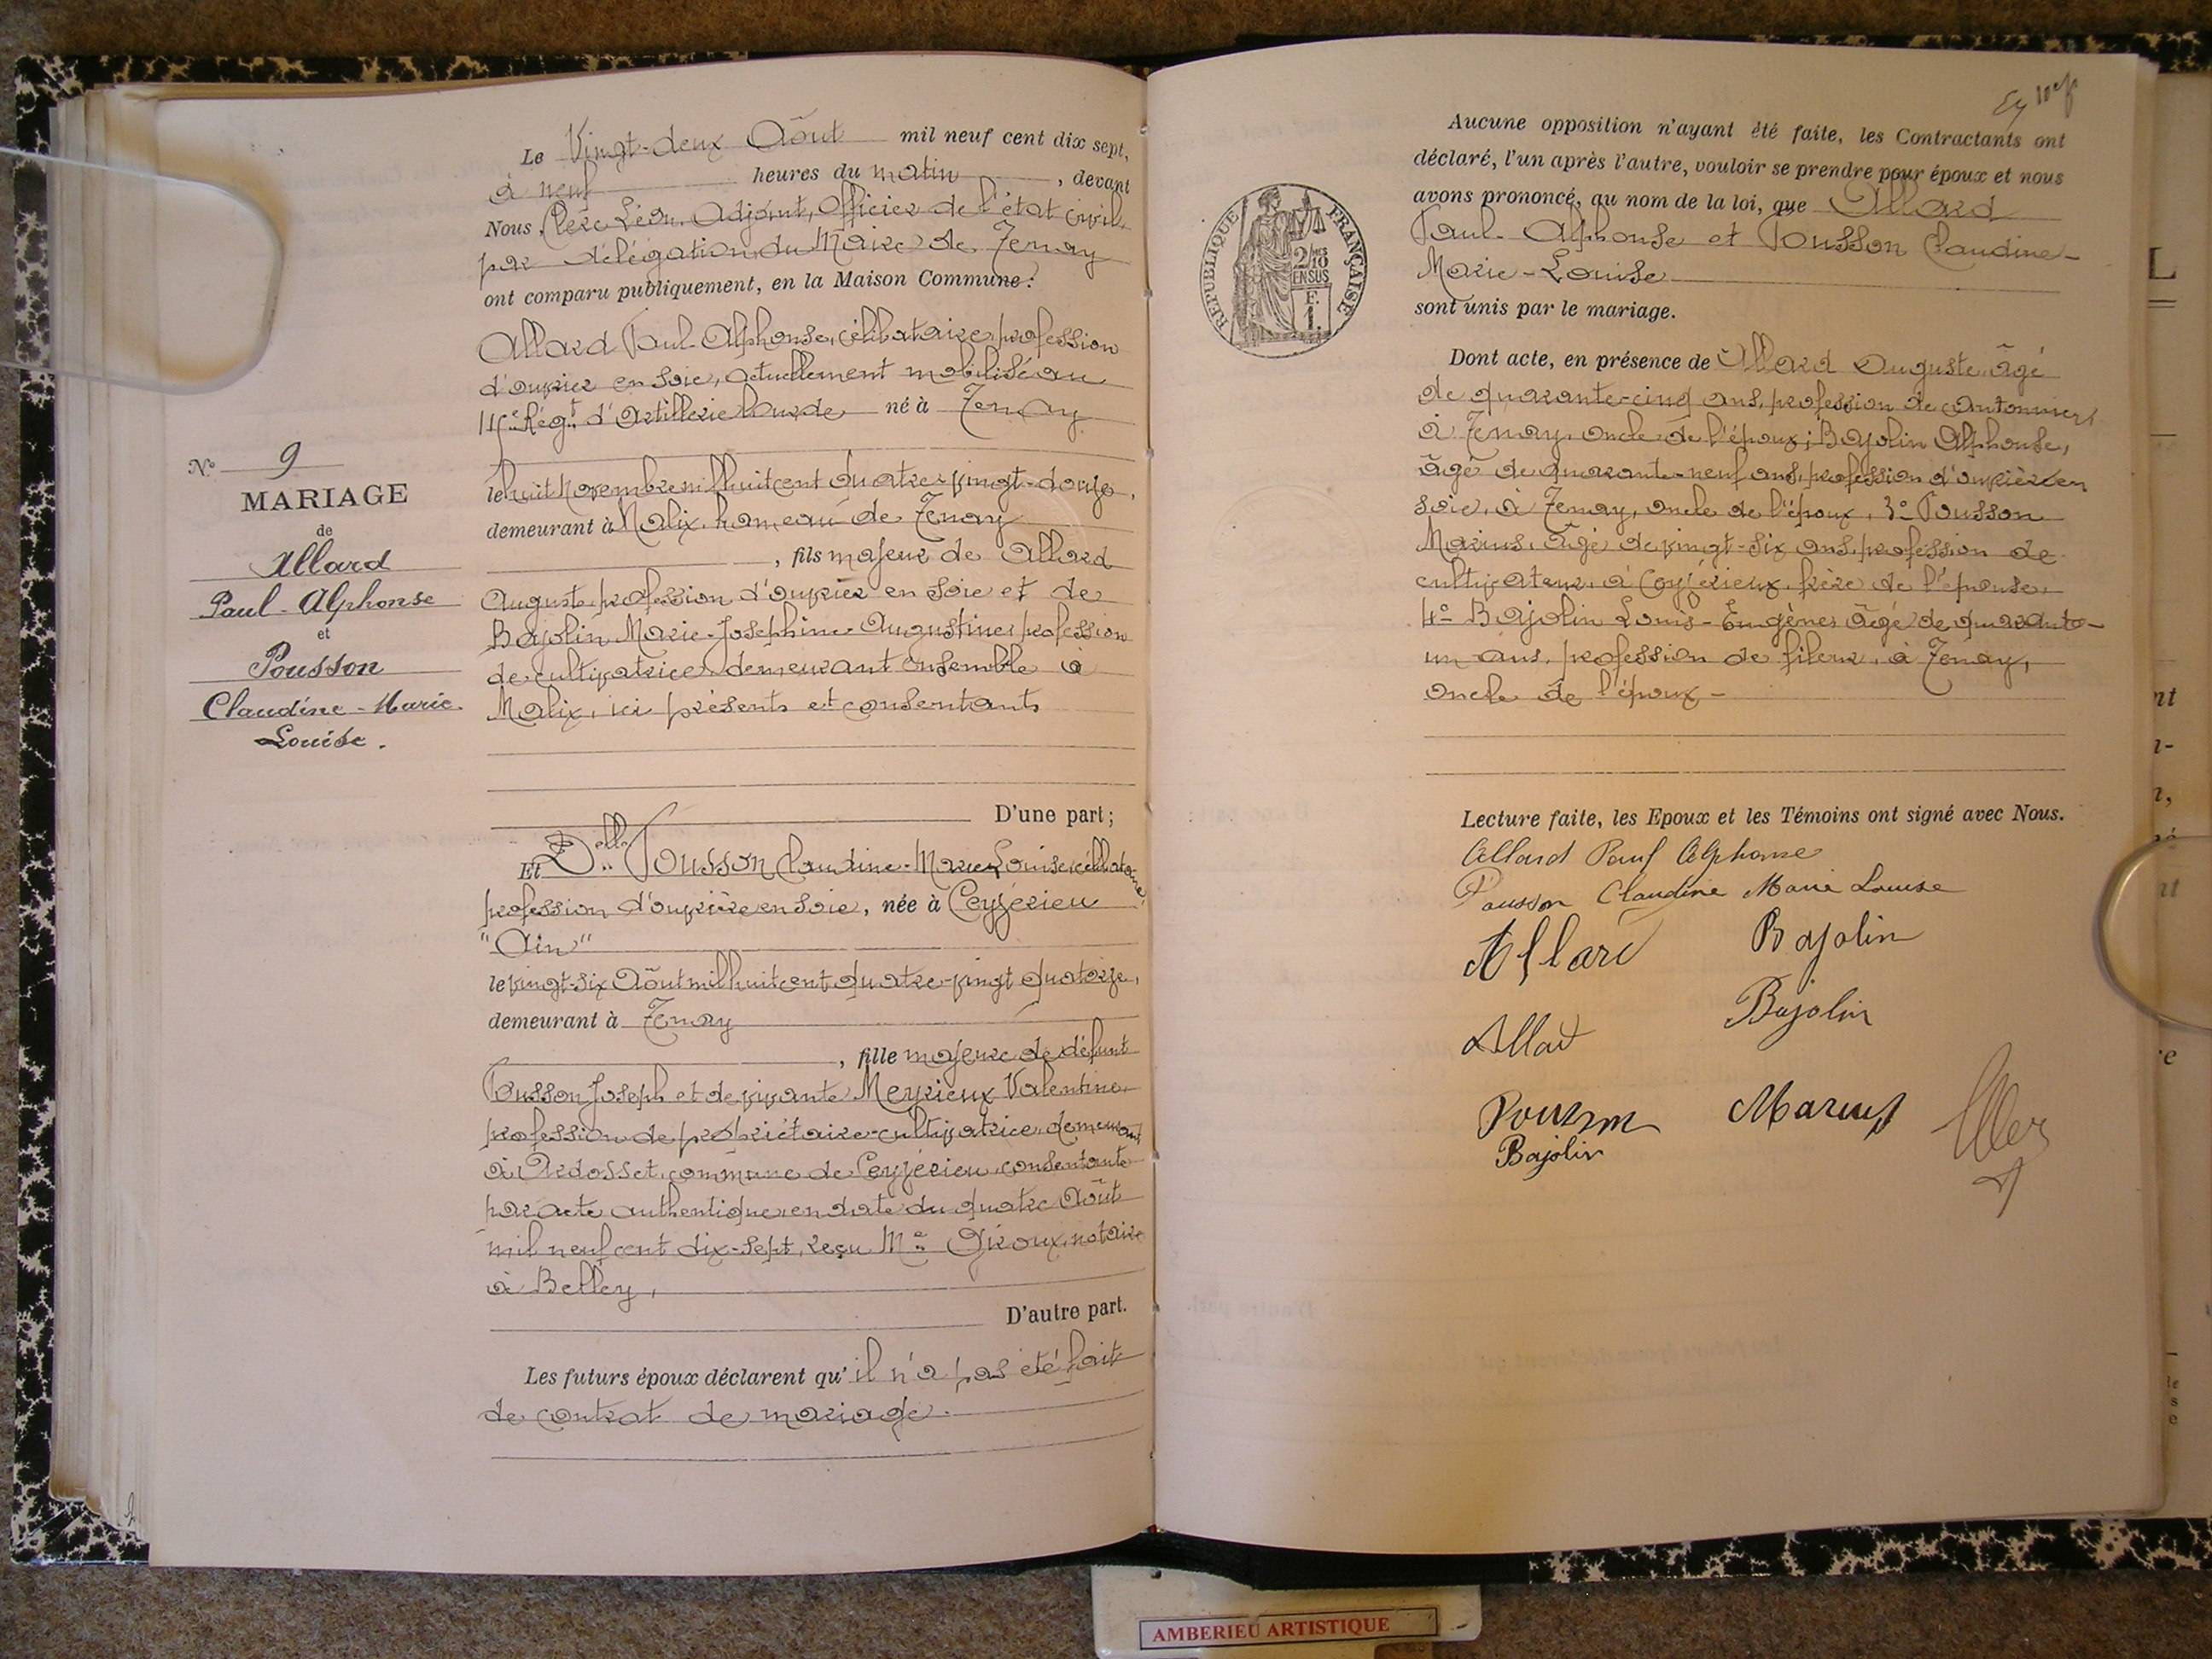 N° 9
MARIAGE
de
Allard
Paul-Alphonse
et
Pousson
Claudine-Marie
Louise.
Le Vingt-deux Août mil neuf cent dix sept,
à neuf heures du matin, devant
Nous, Clerc Léon, Adjoint, Officier de l'état civil
par délégation du Maire de Tenay
ont comparu publiquement, en la Maison Commune:
Allard Paul-Alphonse, célibataire, profession
d'ouvrier en soie, actuellement mobilisé au
Rég.t d'Artillerie lourde né à Tenay
le huit Novembre mil huit cent quatre-vingt-douze,
demeurant à Malix, hameau de Tenay
, fils majeur de Allard
Auguste, profession d'ouvrier en soie et de
Bajolin Marie-Josephine Augustine, profession
de cultivatrice, demeurant ensemble à
Malix, ici présents et consentants
D'une part;
Et Delle Pousson Claudine-Marie-Louise, célibataire,
profession d'ouvrière en soie, née à Ceyzérieu
"Ain"
le vingt-six Août mil huit cent quatre-vingt quatorze,
demeurant à Tenay
, fille majeure de défunt
Pousson Joseph et de vivante Meyrieux Valentine,
profession de propriétaire-cultivatrice, demeurant
à Ardosset, commune de Ceyzérieu, consentante
par acte authentique en date du quatre Août
mil neuf cent dix-sept, reçu Me Giroux, notaire
à Belley,
D'autre part.
Les futurs époux déclarent qu'il n'a pas été fait
de contrat de mariage.
Aucune opposition n'ayant été faite, les Contractants ont
déclaré, l'un après l'autre, vouloir se prendre pour époux et nous
avons prononcé, au nom de la loi, que Allard
Paul-Alphonse et Pousson Claudine-
Marie-Louise
sont unis par le mariage.
RÉPUBLIQUE FRANÇAISE
2/10
EN SUS
F.
1.
Dont acte, en présence de Allard Auguste, âgé
de quarante-cinq ans, profession de cantonnier
à Tenay, oncle de l'époux; Bajolin Alphonse,
âgé de quarante-neuf ans, profession d'ouvrier en
soie, à Tenay, oncle de l'époux, 3° Pousson
Marius, âgé de vingt-six ans, profession de
cultivateur, à Ceyzérieux, frère de l'épouse,
4° Bajolin Louis-Eugène, âgé de quarante-
un ans, profession de fileur, à Tenay,
oncle de l'époux-
Lecture faite, les Epoux et les Témoins ont signé avec Nous.
Allard Paul Alphonse
Pousson Claudine Marie Louise
Allard Bajolin
Allard Bajolin
Pousson Marius
Bajolin
AMBERIEU ARTISTIQUE